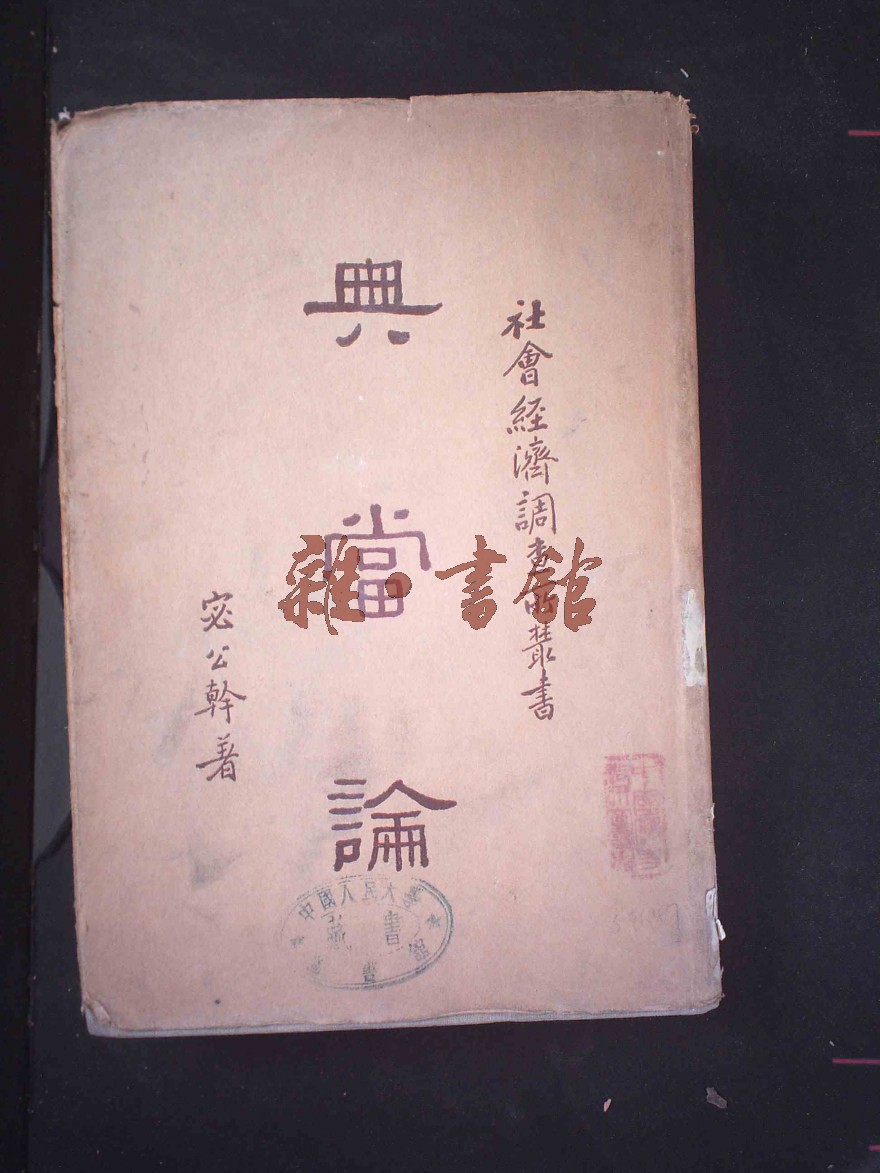 社會經濟調查所叢書
典當論
宓公幹著
雜·書館
中國人民大學
圖書館